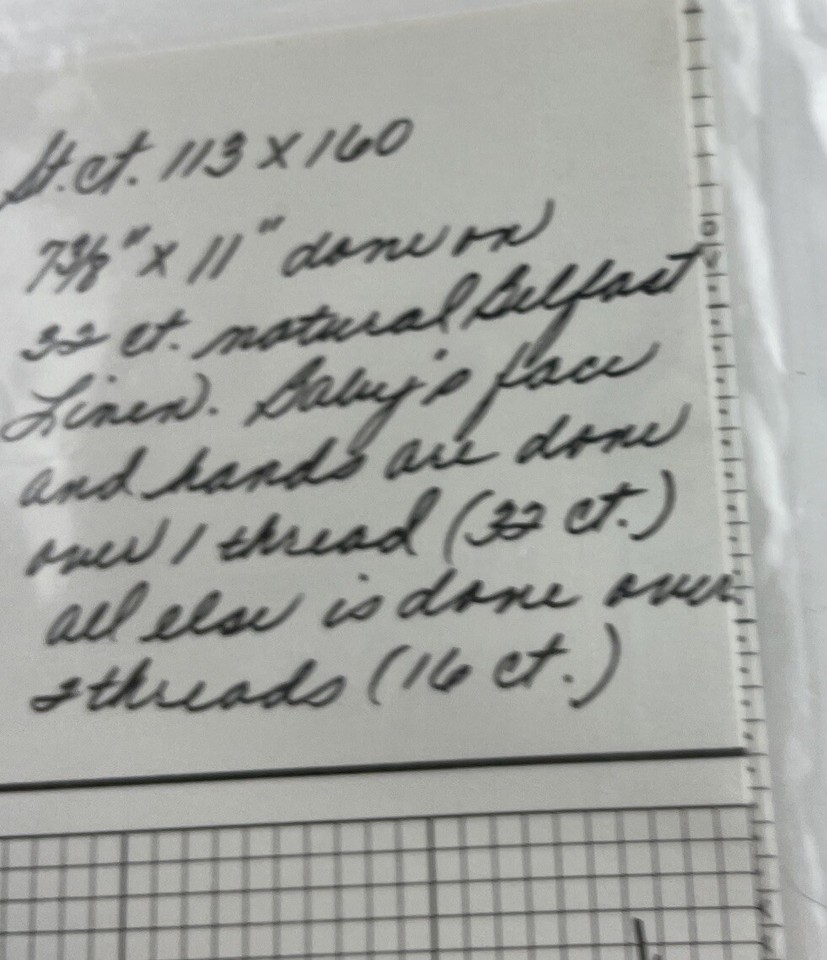 St. ct. 113 x 160
7 3/8" x 11" done on
32 ct. natural Belfast
Linen. Baby's face
and hands are done
over 1 thread (32 ct.)
all else is done over
2 threads (16 ct.)